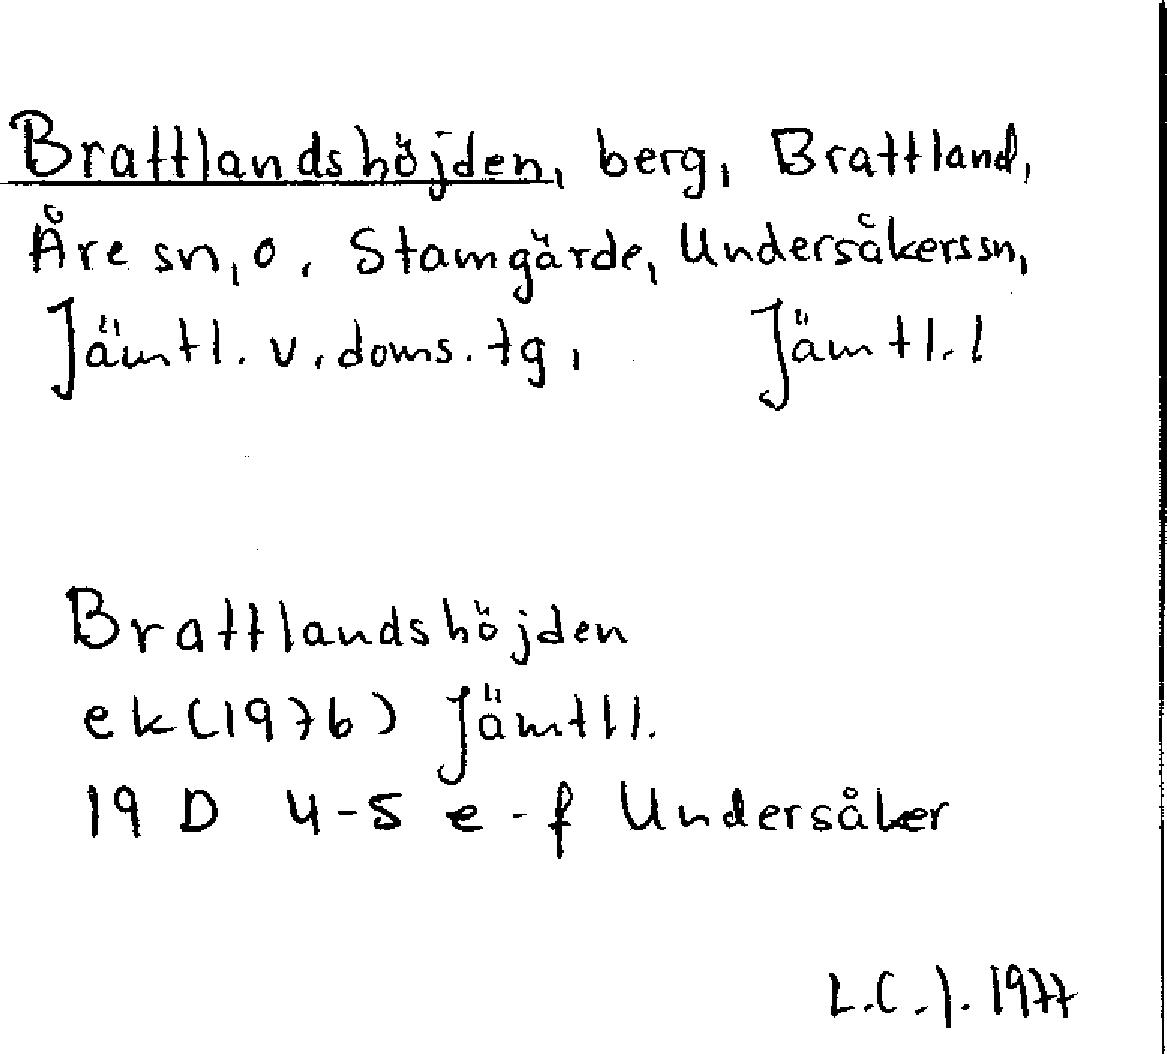 Brattlandshöjden, berg, Brattland,
Åre sn, o. Stamgärde, Undersåkers sn,
Jämtl. v. doms. tg, Jämtl. l
Brattlandshöjden
ek (1976) Jämtl l.
19 D 4-5 e-f Undersåker
L.C.J. 1977